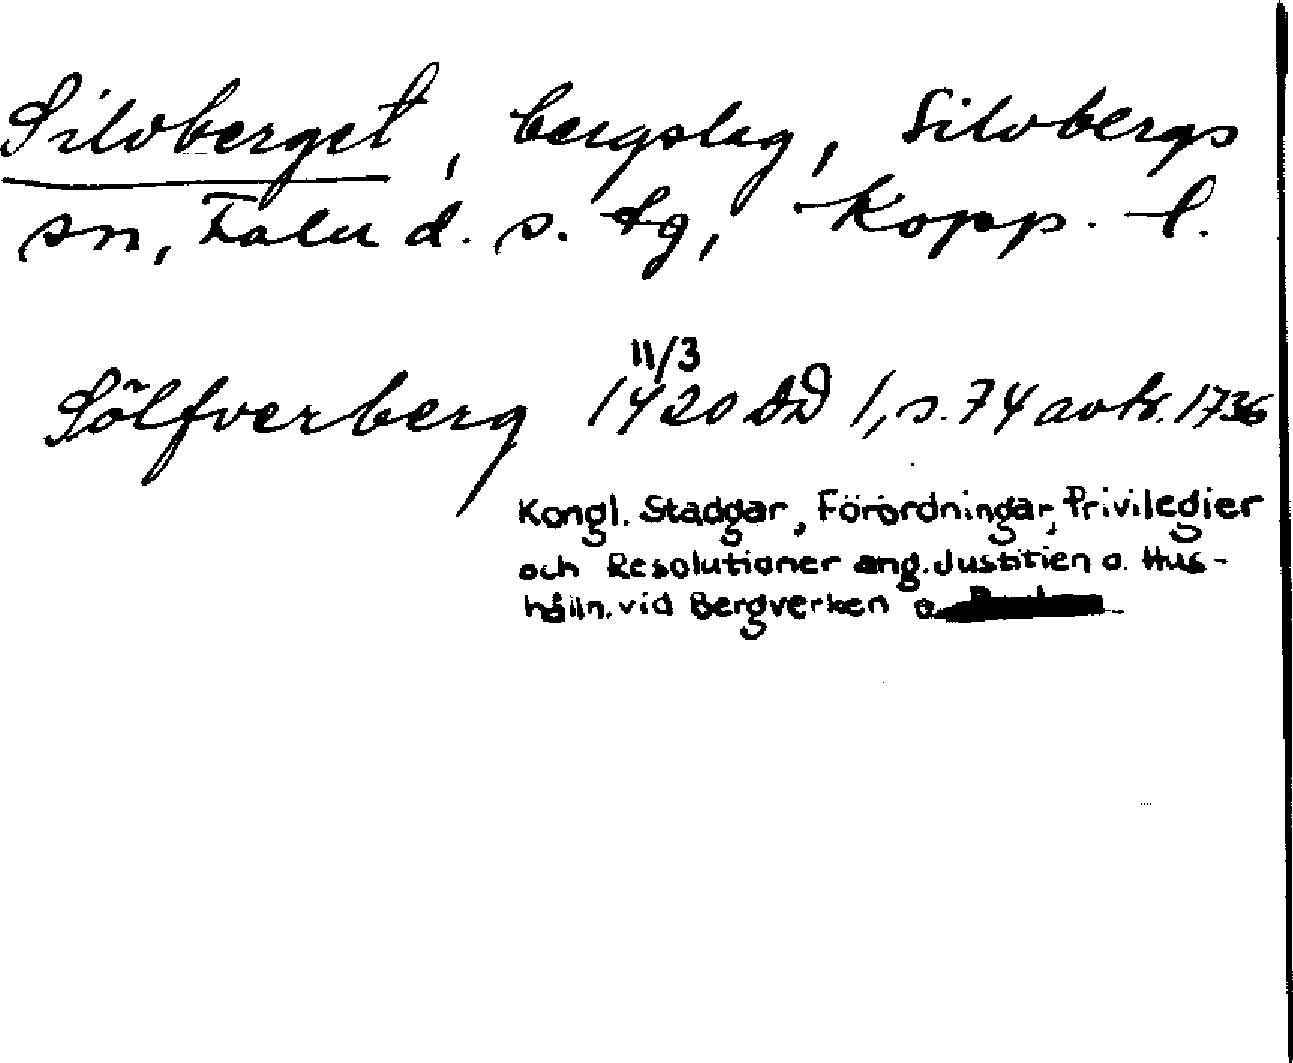 Silvberget, bergslag, Silvbergs
sn, Falu d. s. tg, Kopp. l.
11/3
Sölfverberg 1420 DD 1, s. 74 avtr. 1736
Kongl. Stadgar, Förordningar, Privilegier
och Resolutioner ang. Justitien o. Hus-
hålln. vid Bergverken o.